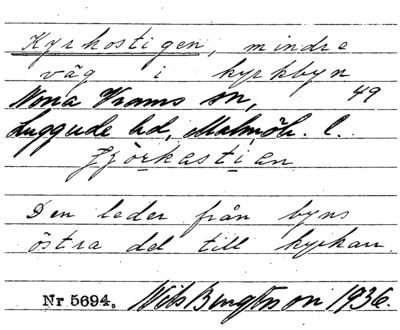 Kyrkostigen, mindre
väg i kyrkbyn
Norra Vrams sn, 49
Luggude hd, Malmöh. l.
Den leder från byns
östra del till kyrkan.
Nr 5694. Nils Bengtsson 1936.